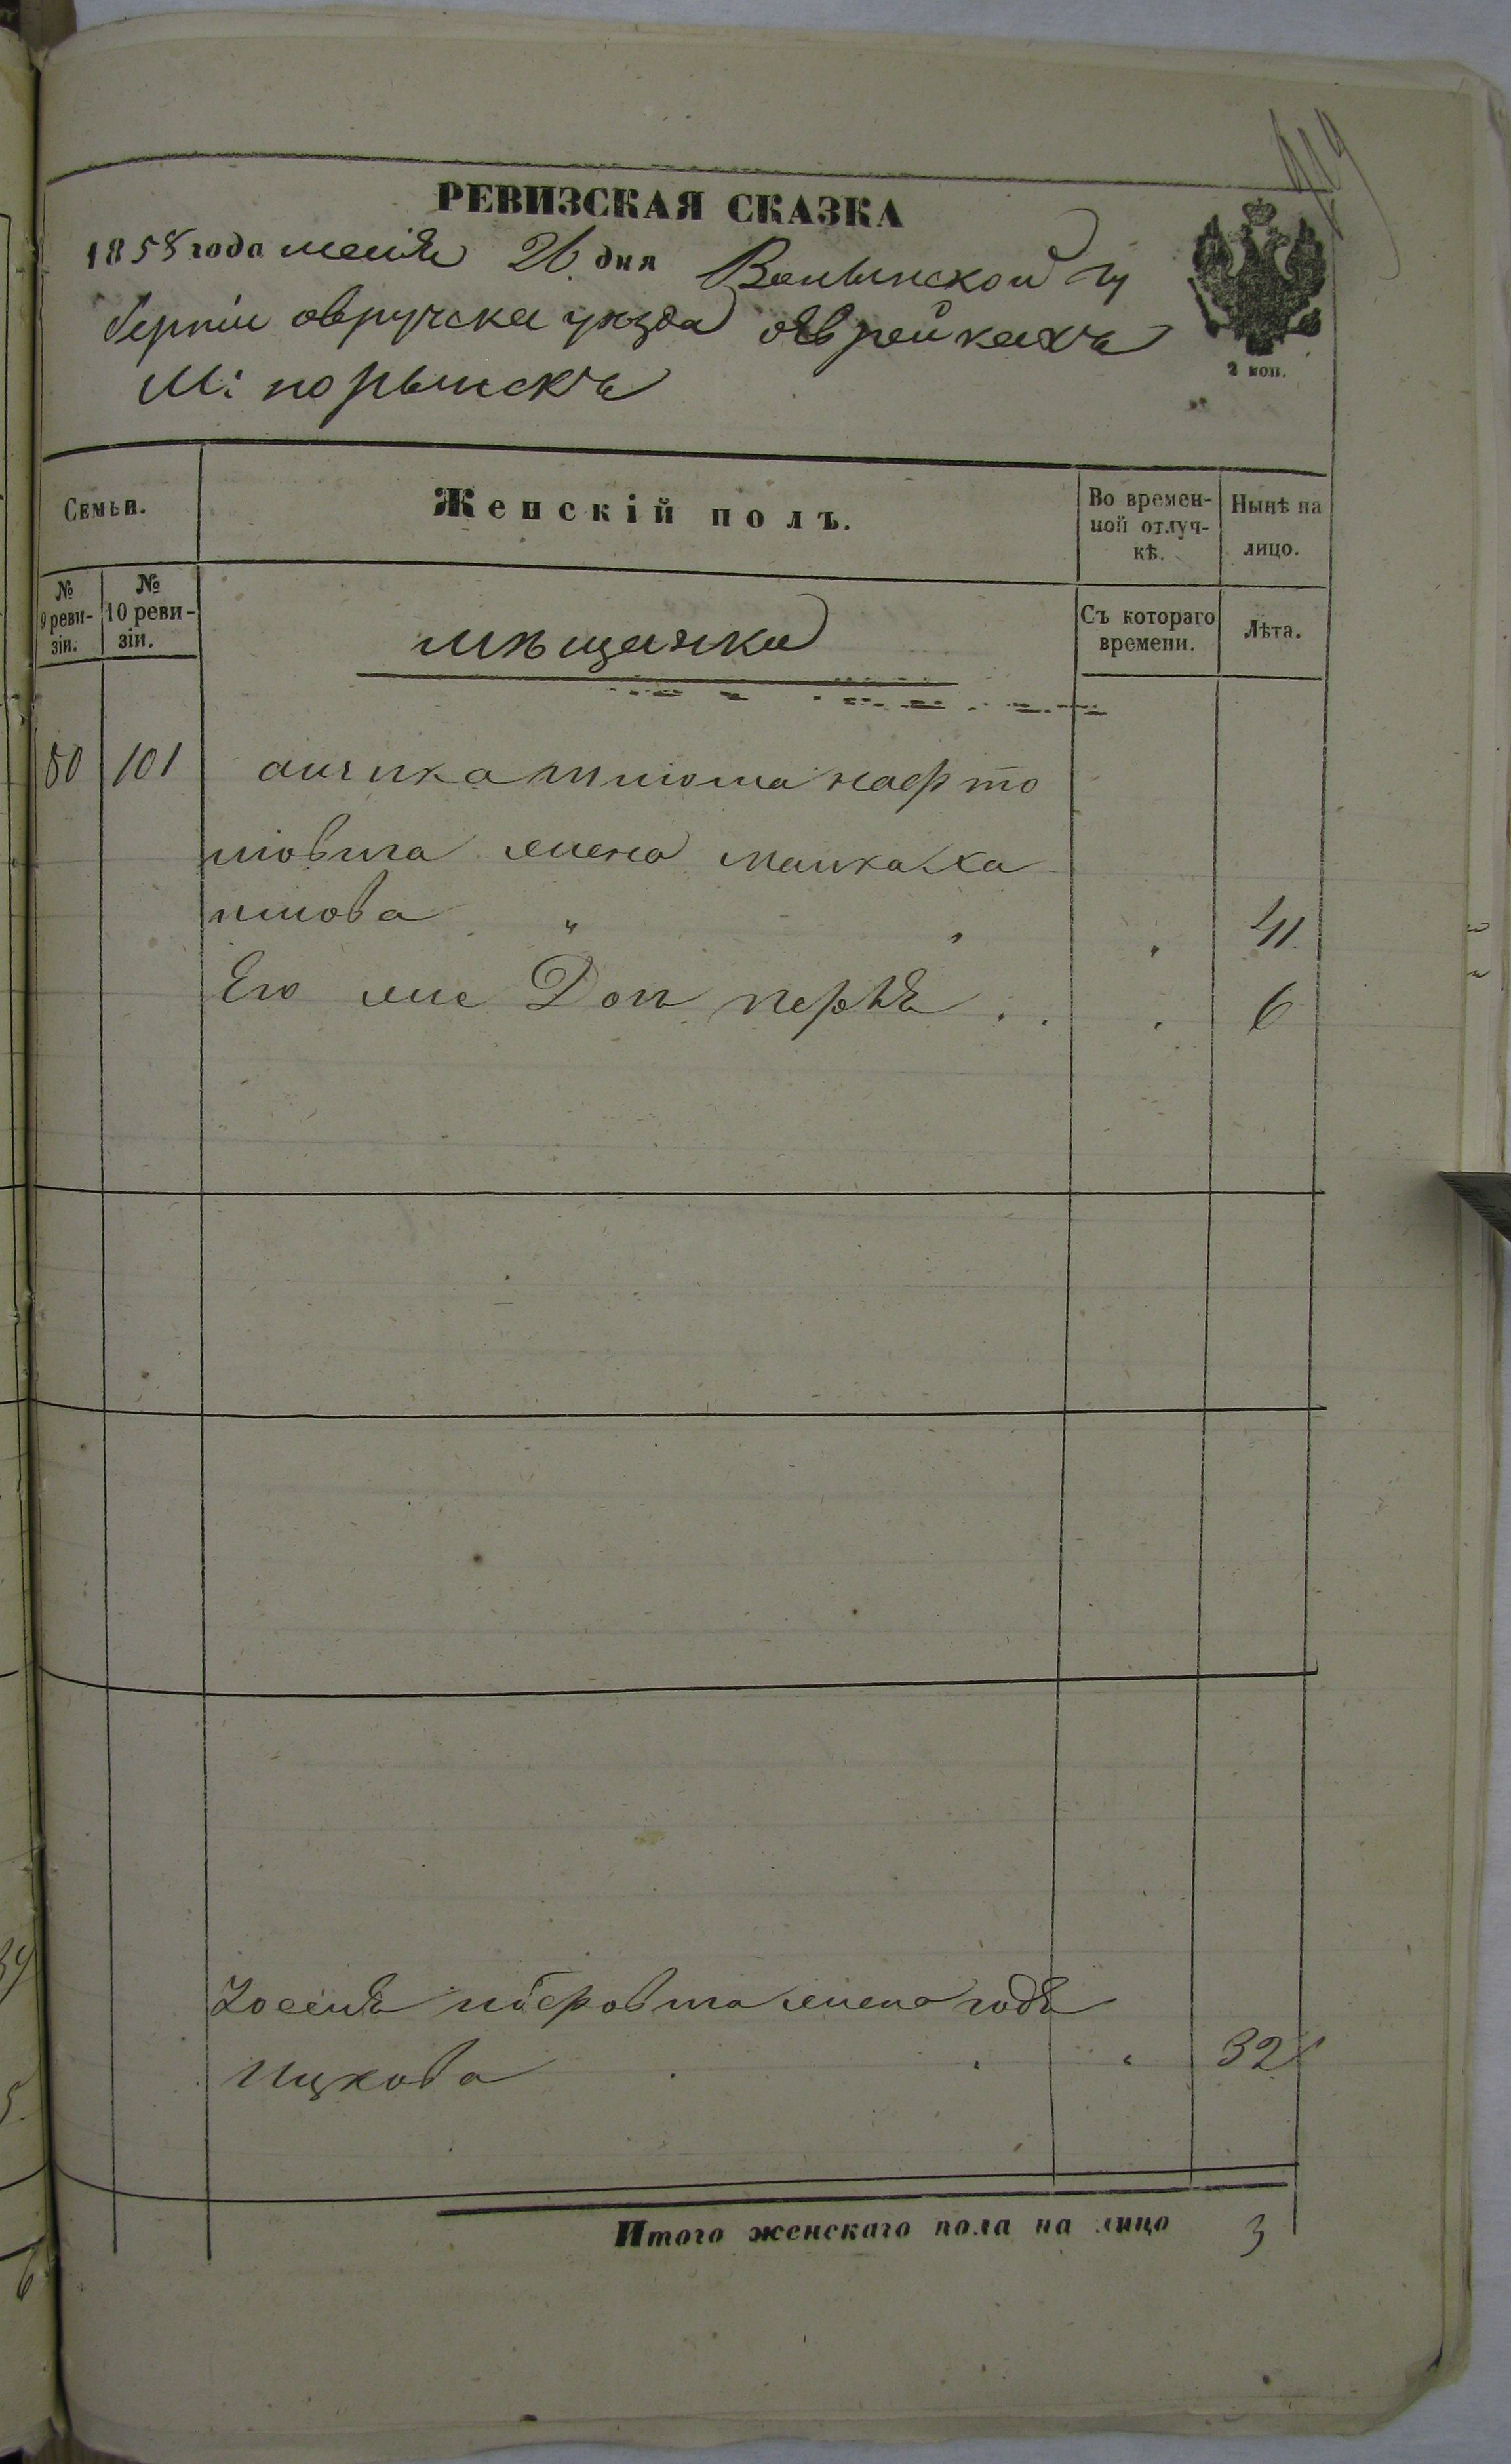 РЕВИЗСКАЯ СКАЗКА
1858 года 26 дня Волынской гу
берніи овручска уѣзда оѣврейкахъ
М: норынскъ
2 коп.
Семьи.
Женскій полъ.
Во времен-
ной отлуч-
кѣ.
Нынѣ на
лицо.
№
9 реви-
зіи.
№
10 реви-
зіи.
мѣщанка
Съ котораго
времени.
Лѣта.
80 101 нафто
ліовича жена малка ха
имова " " 41.
Его же Доч перля . . 6
жена годя
Ицкова 32
Итого женскаго пола на лицо 3